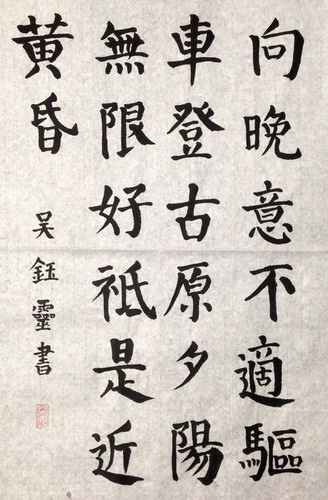 向晚意不適驅
車登古原夕陽
無限好祗是近
黃昏
吳鈺靈書